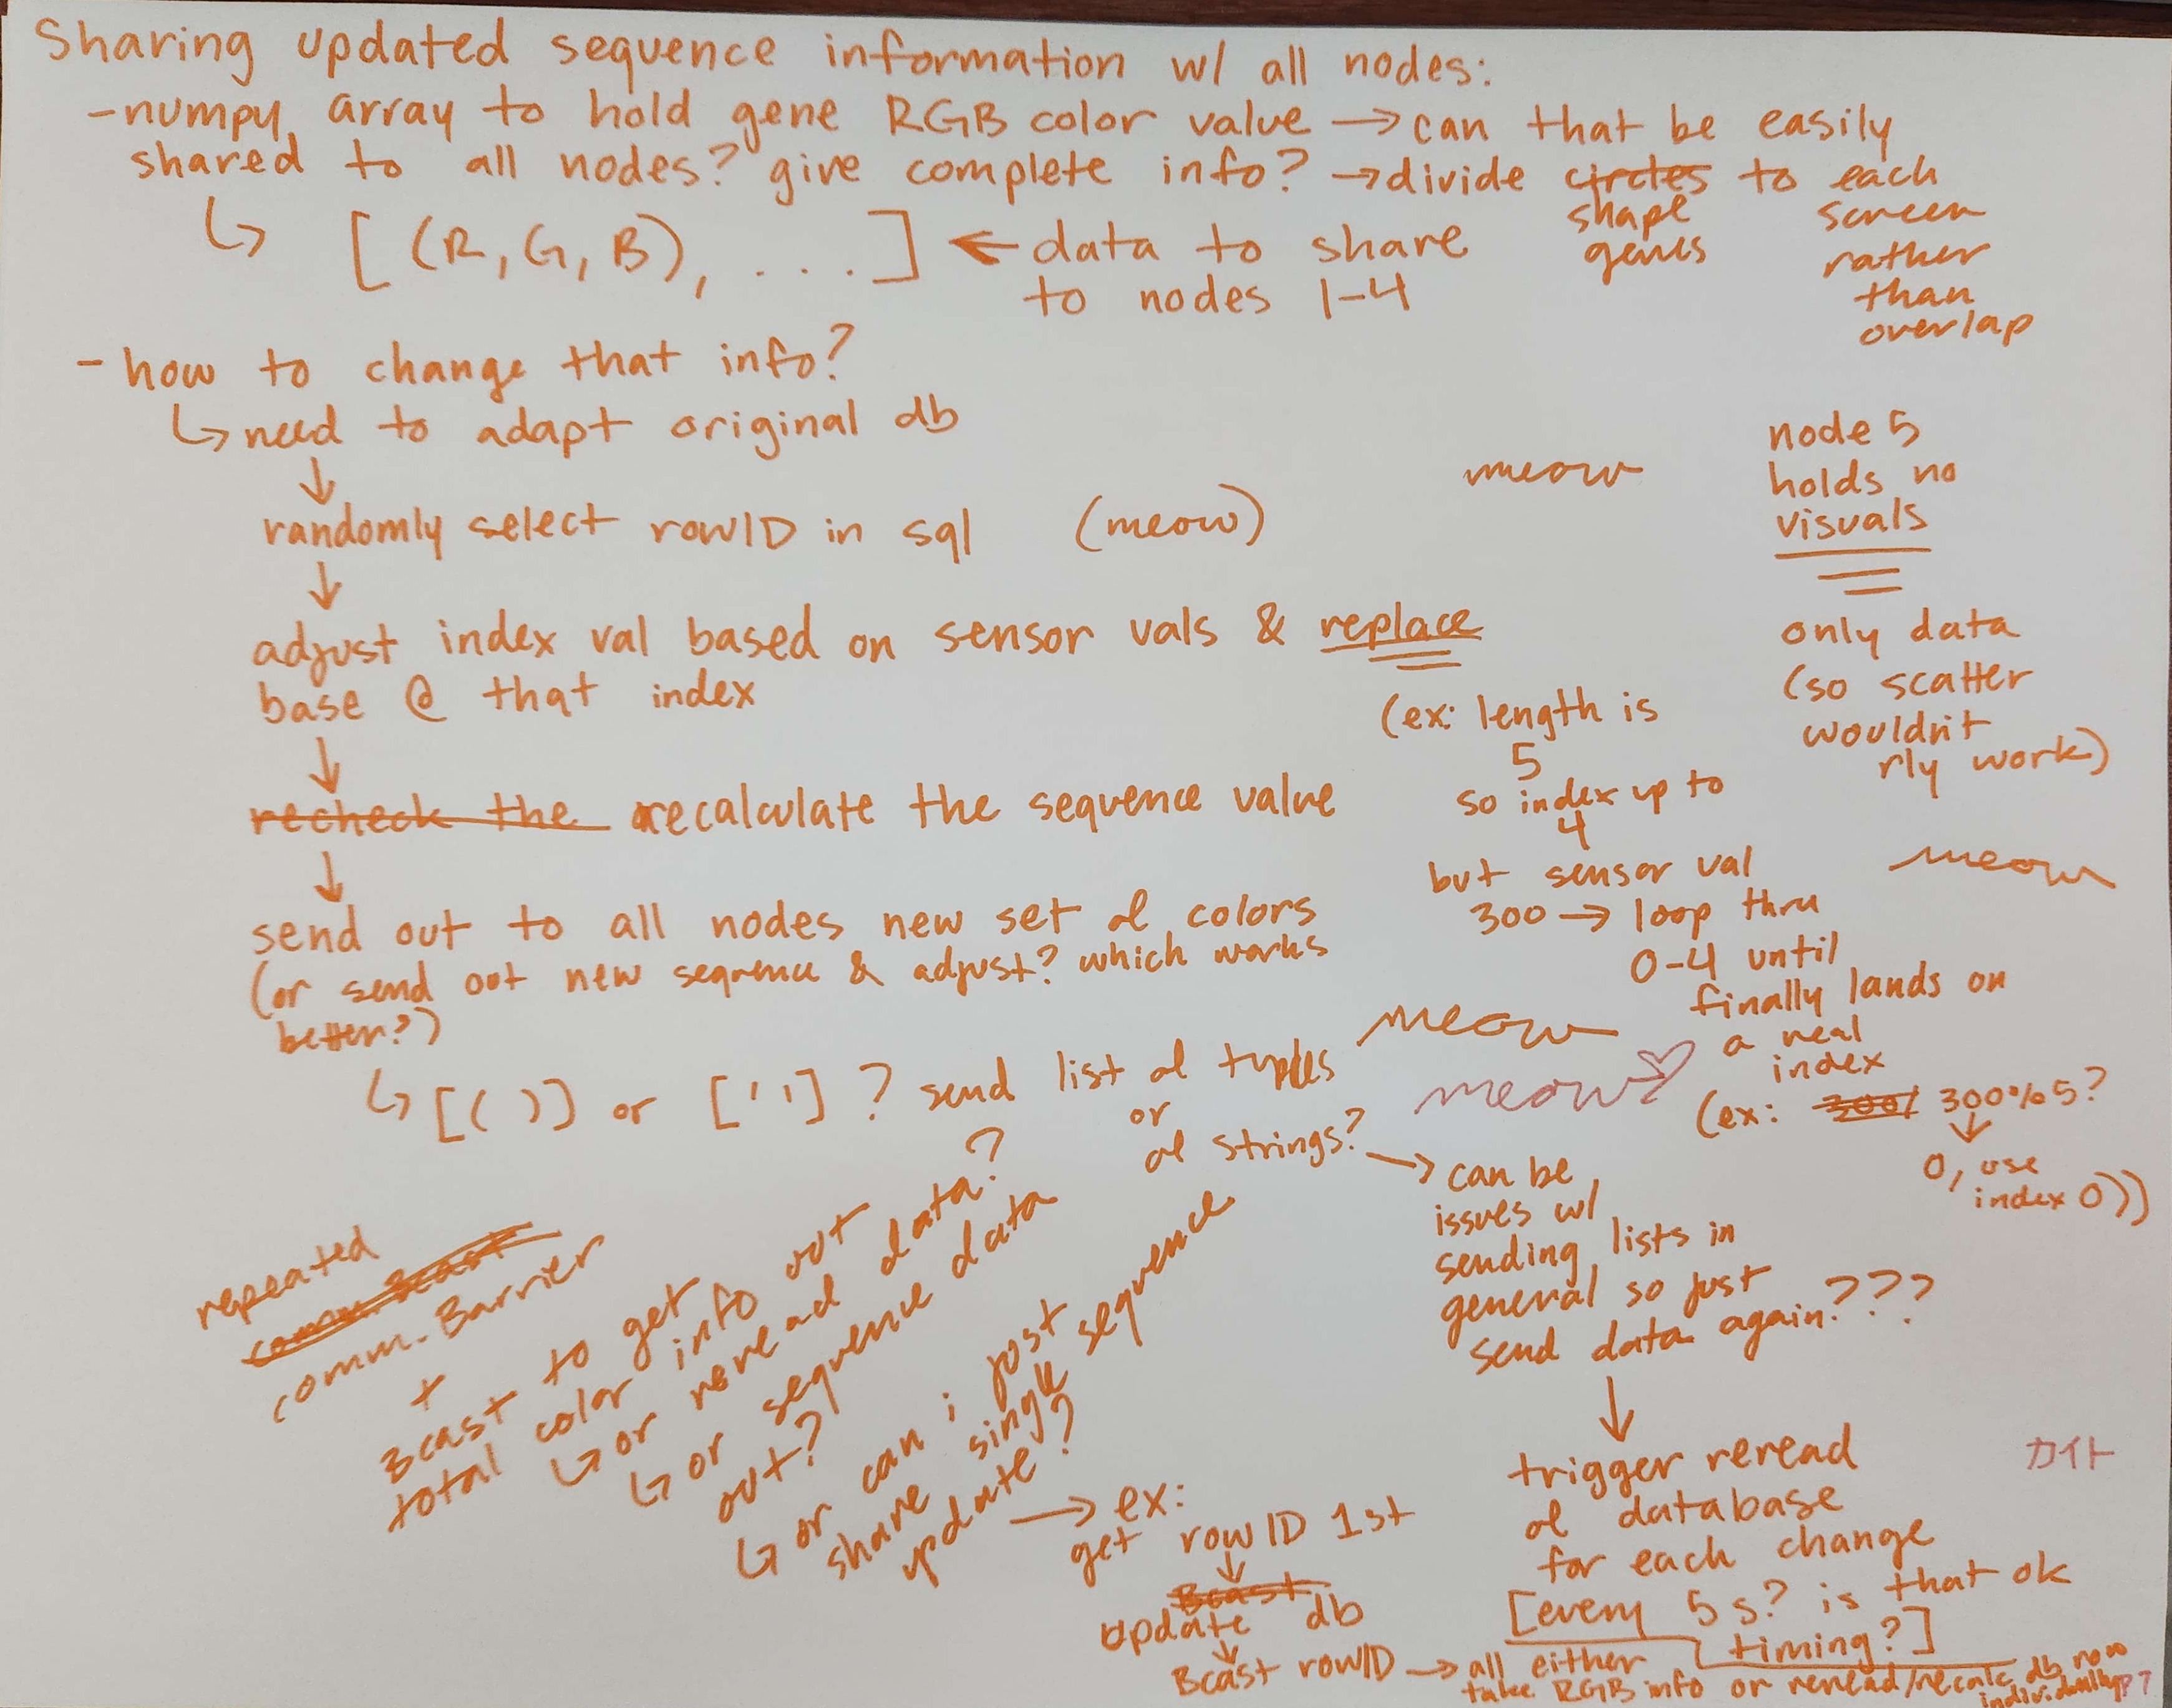 Sharing updated sequence information w/ all nodes:
-numpy array to hold gene RGB color value → can that be easily
shared to all nodes? give complete info? → divide circles to each
shape
genes
screen
rather
than
overlap
↳ [(R,G,B), ...] ← data to share
to nodes 1-4
- how to change that info?
↳ need to adapt original db
↓
randomly select rowID in sql (meow)
↓
adjust index val based on sensor vals & replace
base @ that index
↓
recheck the recalculate the sequence value
↓
send out to all nodes new set of colors
(or send out new sequence & adjust? which works
better?)
↳ [( )] or [' '] ? send list of tuples
or
of strings?
→ can be
issues w/
sending lists in
general so just
send data again???
↓
trigger reread
of database
for each change
[every 5 s? is that ok
timing?]
meow
node 5
holds no
visuals
only data
(so scatter
wouldn't
rly work)
(ex: length is
5
so index up to
4
but sensor val
300 → loop thru
0-4 until
finally lands on
a real
index
(ex: 300/ 300%5?
↓
0, use
index 0))
meow
meow
meow♡
repeated
comm.Bcast
comm.Barrier
+
Bcast to get
total color info out
↳ or reread data?
↳ or sequence data
out?
↳ or can i just
share single sequence
update?
→ ex:
get rowID 1st
↓
Bcast
update db
↓
Bcast rowID → all either
take RGB info or reread/recalc db now
individually??
カイト